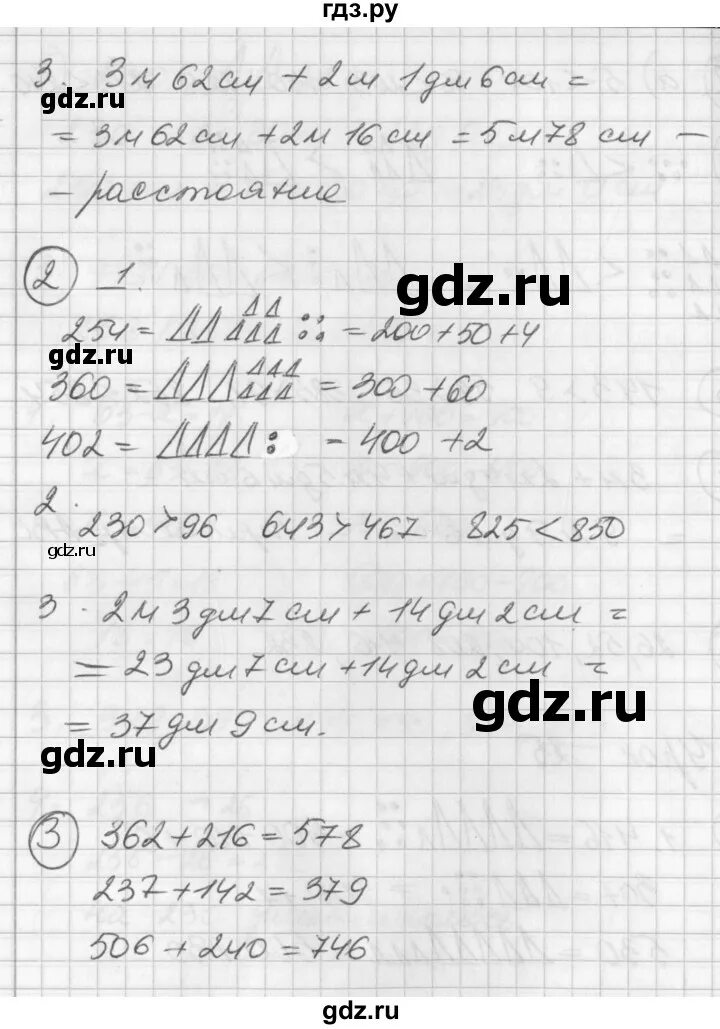 гдз.ру
3. 3 м 62 см + 2 м 1 дм 6 см =
gdz.ru
= 3 м 62 см + 2 м 16 см = 5 м 78 см —
— расстояние
② 1.
gdz.ru
254 = ΔΔ ΔΔΔΔΔ :: = 200 + 50 + 4
gdz.ru
360 = ΔΔΔ ΔΔΔΔΔΔ = 300 + 60
402 = ΔΔΔΔ : - 400 + 2
2.
230 > 96 643 > 467 825 < 850
gdz.ru
3. 2 м 3 дм 7 см + 14 дм 2 см =
= 23 дм 7 см + 14 дм 2 см =
gdz.ru
= 37 дм 9 см.
gdz.ru
③ 362 + 216 = 578
237 + 142 = 379
506 + 240 = 746
gdz.ru
gdz.ru
гдз.ру